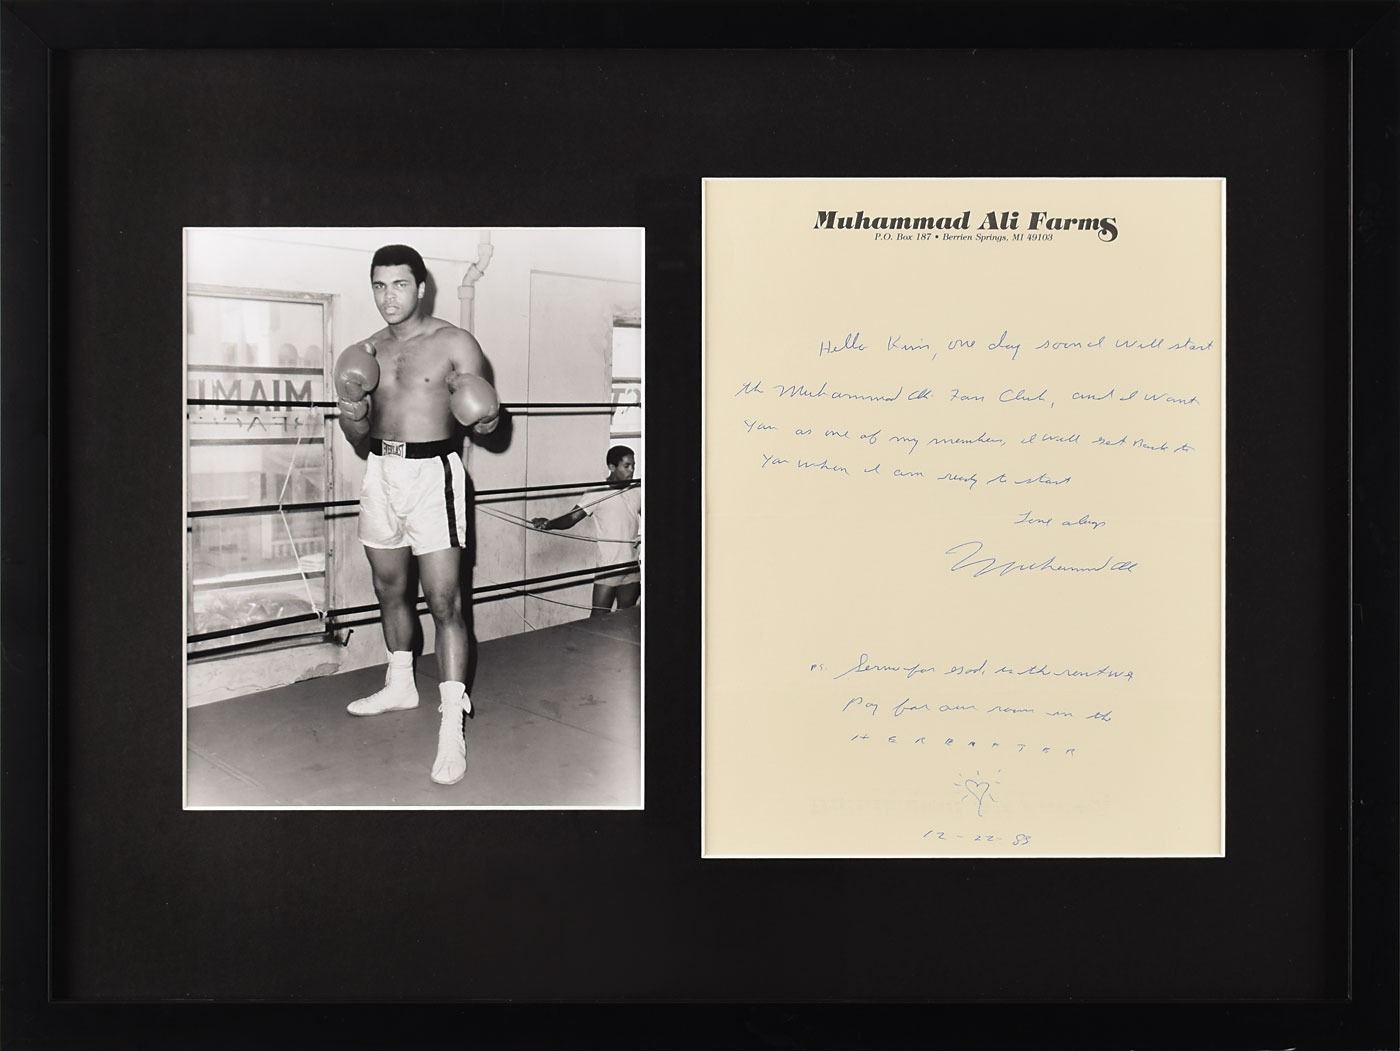 Muhammad Ali Farms
P.O. Box 187 • Berrien Springs, MI 49103
Hello Kim, one day soon I will start
the Muhammad Ali Fan Club, and I want
You as one of my members, I will get back to
You when I am ready to start
Love always
Muhammad Ali
P.S. Service for God, is the rent we
Pay for our room in the
HEREAFTER
12-22-83
MIAMI
BEACH
EVERLAST